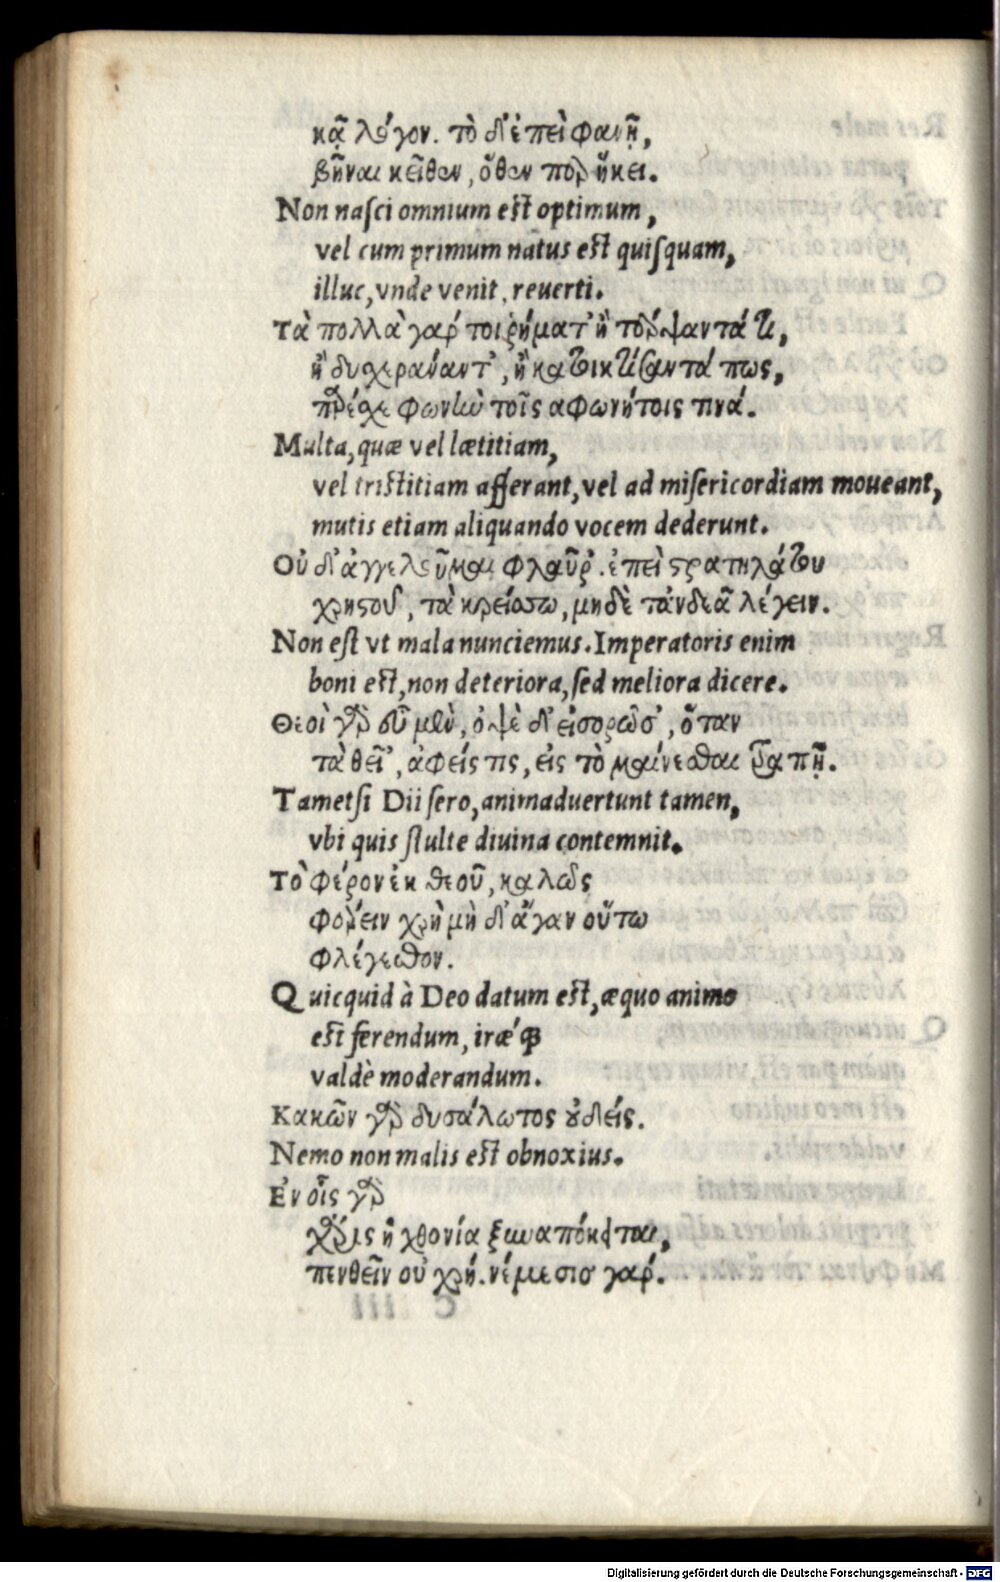 κᾷ λόγον. τὸ δ' ἐπεὶ φανῇ,
βῆναι κεῖθεν, ὅθεν περ ἥκει.
Non nasci omnium est optimum,
vel cum primum natus est quisquam,
illuc, vnde venit, reuerti.
Τὰ πολλὰ γάρ τοι ῥήματ' ἢ τέρψαντά τι,
ἢ δυχεράναντ', ἢ κατοικτίσαντά πως,
παρέσχε φωνὴν τοῖς αφωνήτοις τινά.
Multa, quæ vel lætitiam,
vel tristitiam afferant, vel ad misericordiam moueant,
mutis etiam aliquando vocem dederunt.
Οὐ δ' ἀγγελοῦμαι φλαῦρ'. ἐπεὶ στρατηλάτου
χρηστοῦ, τὰ κρείσσω, μηδὲ τἀνδεᾶ λέγειν.
Non est vt mala nunciemus. Imperatoris enim
boni est, non deteriora, sed meliora dicere.
Θεοὶ γὰρ εὖ μὲν, ὀψὲ δ' εἰσορῶσ', ὅταν
τὰ θεῖ', ἀφείς τις, εἰς τὸ μαίνεσθαι τραπῇ.
Tametsi Dii sero, animaduertunt tamen,
vbi quis stulte diuina contemnit.
Τὸ φέρον ἐκ θεοῦ, καλῶς
φέρειν χρὴ μὴ δ' ἄγαν οὕτω
φλέγεσθον.
Quicquid à Deo datum est, æquo animo
est ferendum, iræ'que
valdè moderandum.
Κακῶν γὰρ δυσάλωτος οὐδείς.
Nemo non malis est obnoxius.
Ἐν οἷς γὰρ
χάρις ἡ χθονία ξυναπόκειται,
πενθεῖν οὐ χρή. νέμεσισ γάρ.